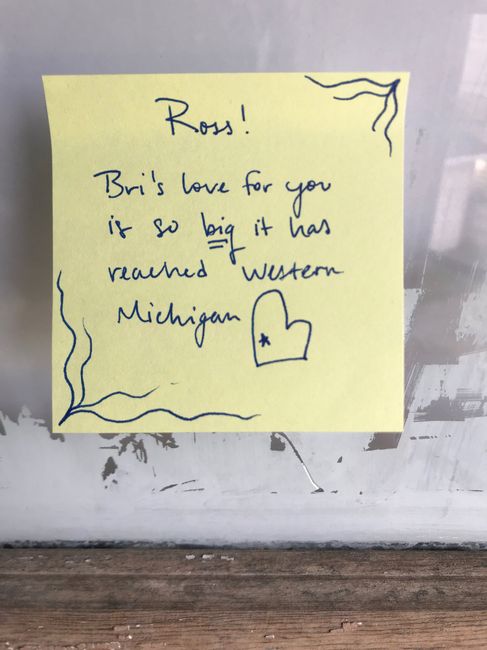 Ross!
Bri's love for you
is so big it has
reached Western
Michigan